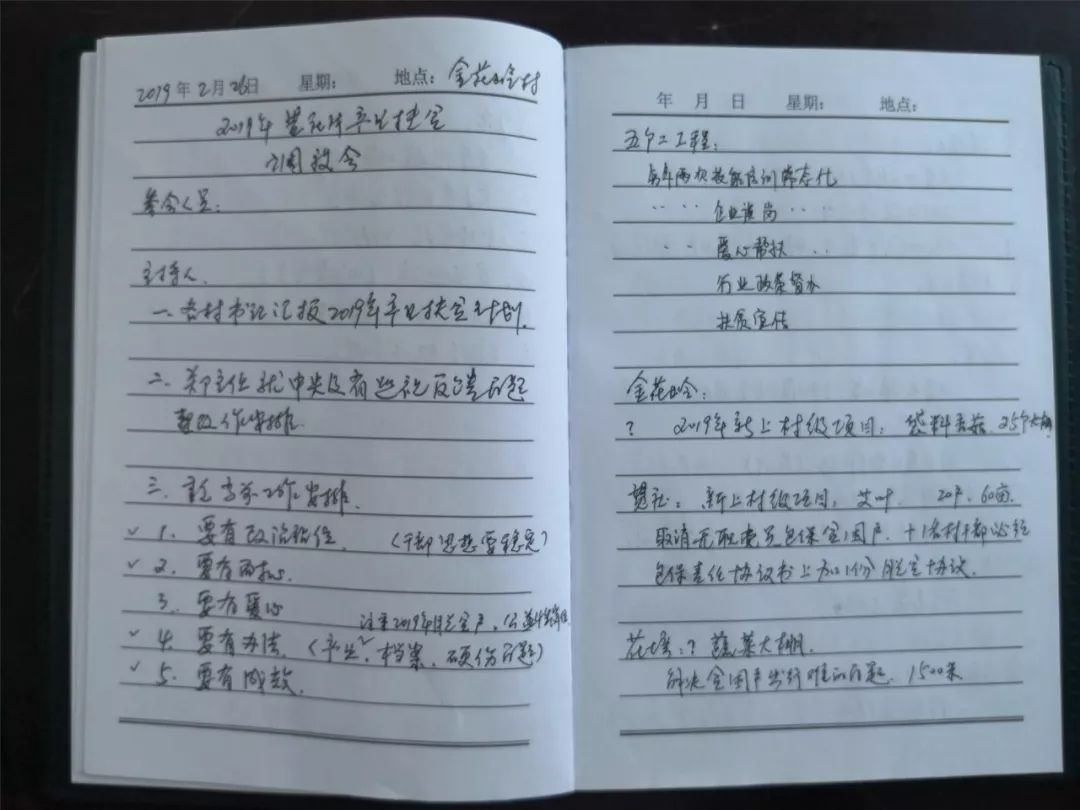 2019年2月26日 星期: 地点: 金花岭村
2019年 产业扶贫
调度会
参会人员:
主持人
一、各村书记汇报2019年产业扶贫计划.
二、郑主任就中央及省巡视反馈问题
整改工作安排.
三、当前工作安排.
✓ 1. 要有政治站位. (干部思想要稳定)
✓ 2. 要有
3. 要有爱心 注重2019年脱贫户、公益
✓ 4. 要有办法. (产业、档案、硬伤问题)
✓ 5. 要有成效.
年 月 日 星期: 地点:
五个二工程:
每年两次技能培训常态化
〃 〃 〃 企业送岗 〃 〃
〃 〃 爱心帮扶 〃 〃
行业政策督办
扶贫宣传
金花岭:
? 2019年新上村级项目: 袋料香菇 25个大棚
新上村级项目, 艾叶. 20户. 60亩.
聘请无职党员包保贫困户.
包保责任协议书上加1份脱贫协议.
花塔: ? 蔬菜大棚.
解决贫困户出行难的问题. 1500米